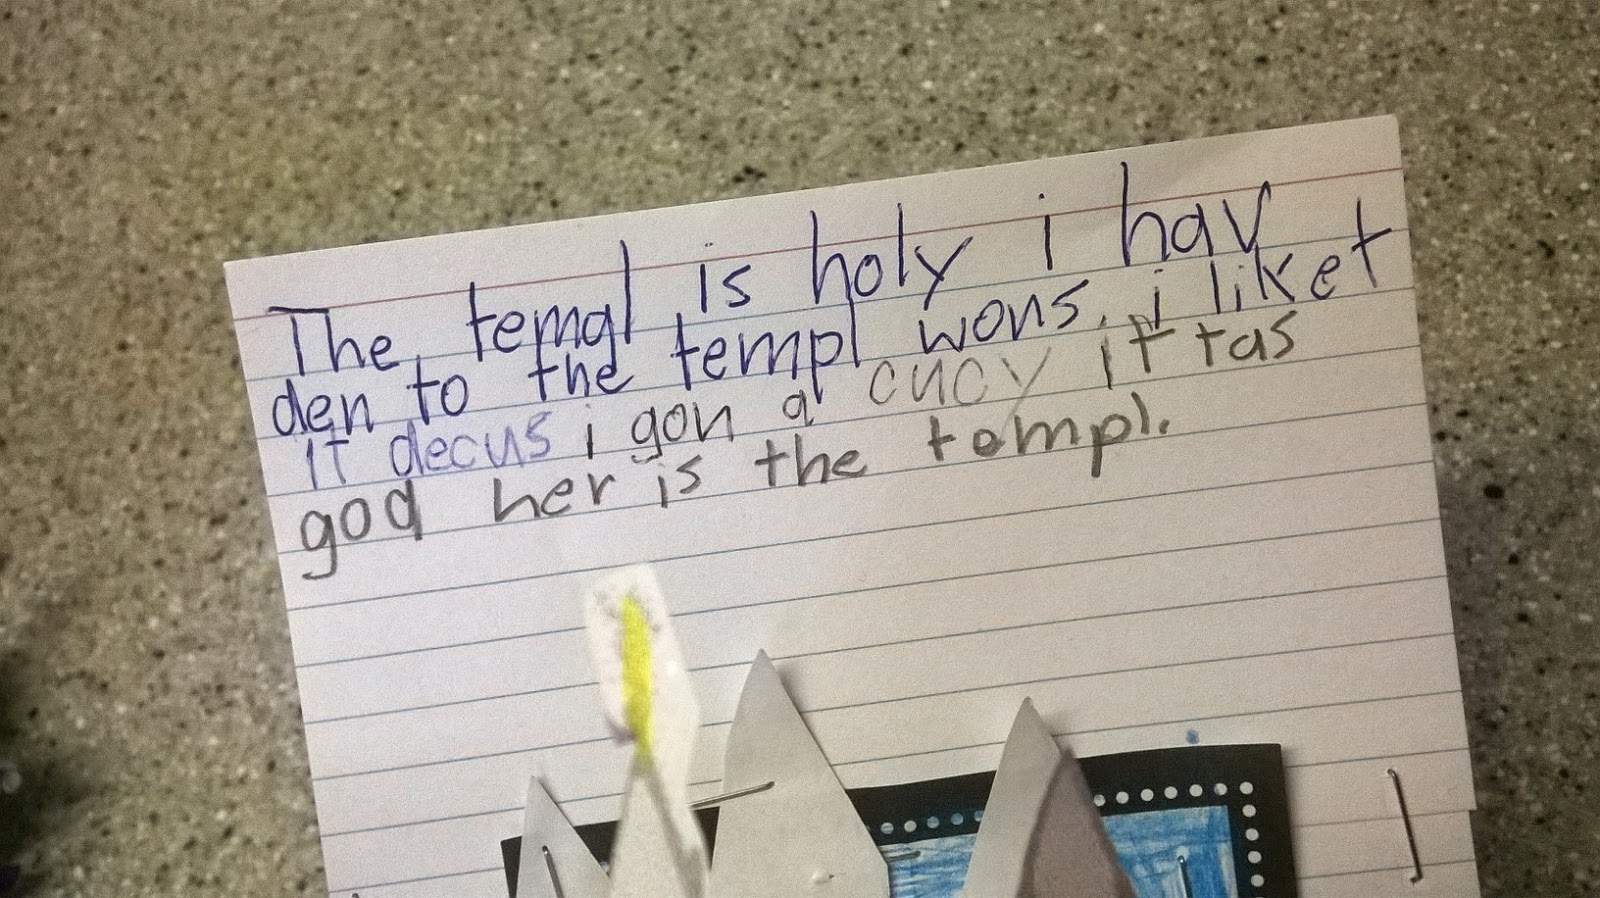 The templ is holy i hav
den to the templ wons. i liket
it decus i gon a cucy it tas
god her is the templ.